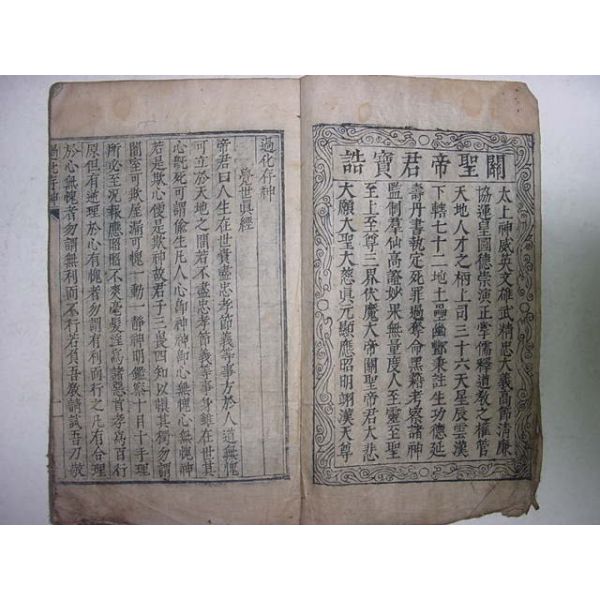 關聖帝君寶誥
太上神威英文雄武精忠大義高節清廉
協運皇圖德崇演正掌儒釋道教之權管
天地人才之柄上司三十六天星辰雲漢
下轄七十二地土壘幽酆秉註生功德延
壽丹書執定死罪過奪命黑籍考察諸神
監制羣仙高證妙果無量度人至靈至聖
至上至尊三界伏魔大帝關聖帝君大悲
大願大聖大慈眞元顯應昭明翊漢天尊
過化存神
覺世眞經
帝君曰人生在世貴盡忠孝節義等事方於人道無愧
可立於天地之間若不盡忠孝節義等事身雖在世其
心旣死可謂偷生凡人心卽神神卽心無愧心無愧神
若是欺心便是欺神故君子三畏四知以愼其獨勿謂
闇室可欺屋漏可愧一動一靜神明鑑察十目十手理
所必至況報應昭昭不爽毫髮淫爲諸惡首孝爲百行
原但有逆理於心有愧者勿謂有利而行之凡有合理
於心無愧者勿謂無利而不行若負吾教請試吾刀敬
過化存神